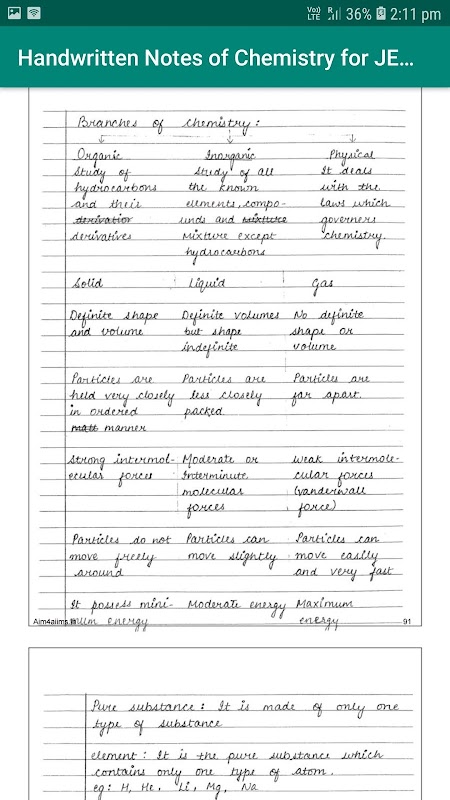 Vo)) LTE R 36% 2:11 pm
Handwritten Notes of Chemistry for JE...
Branches of chemistry :
Organic Inorganic Physical
Study of Study of all It deals
hydrocarbons the known with the
and their elements, compo- laws which
derivation unds and mixture governers
derivatives Mixture except chemistry.
hydrocarbons
Solid Liquid Gas
Definite shape Definite volumes No definite
and volume but shape shape or
indefinite volume
Particles are Particles are Particles are
held very closely less closely far apart.
in ordered packed.
matt manner
Strong intermol- Moderate or weak intermole-
ecular forces Interminute cular forces
molecular (vanderwall
forces force)
Particles do not Particles can Particles can
move freely move slightly move easily
around and very fast
It possess mini- Moderate energy Maximum
mum energy energy
Aim4aiims.in 91
Pure substance : It is made of only one
type of substance
element : It is the pure substance which
contains only one type of atom.
eg: H, He, Li, Mg, Na